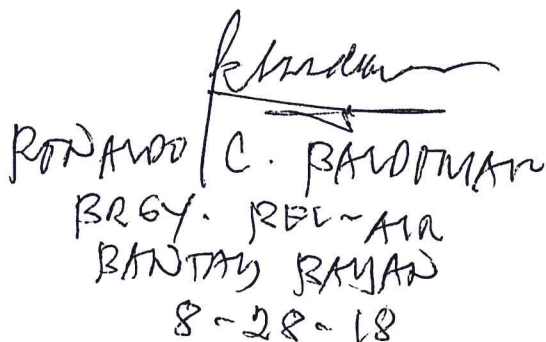 RONALDO C. BALDOMAR
BRGY. BEL-AIR
BANTAY BAYAN
8-28-18